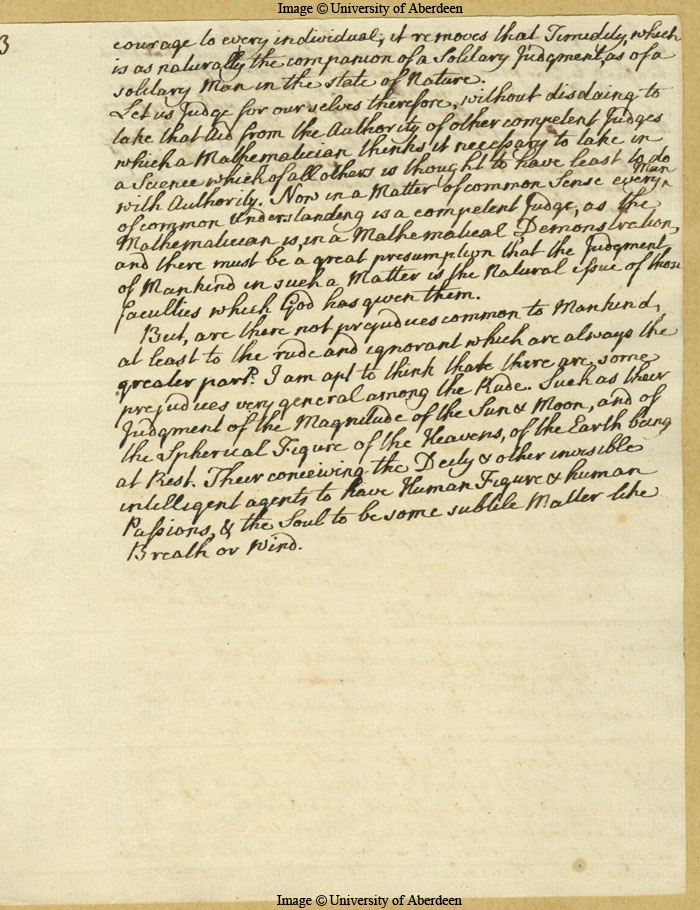 Image © University of Aberdeen
3
courage to every individual, it removes that Timidity, which
is as naturally the companion of a Solitary Judgment, as of a
solitary Man in the state of Nature.
Let us Judge for ourselves therefore, without disdaing to
take that Aid from the Authority of other competent Judges
which a Mathematician thinks it necessary to take in
a Science which of all others is thought to have least to do
with Authority. Now in a Matter of common Sense every Man
of common Understanding is a competent Judge, as the
Mathematician is, in a Mathematical Demonstration,
and there must be a great presumption that the Judgment
of Mankind in such a Matter is the Natural issue of those
faculties which God has given them.
But, are there not prejudices common to Mankind,
at least to the rude and ignorant which are always the
greater part? I am apt to think that there are some
prejudices very general among the Rude. Such as their
Judgment of the Magnitude of the Sun & Moon, and of
the Spherical Figure of the Heavens, of the Earth being
at Rest. Their conceiving the Deity & other invisible
intelligent agents to have Human Figure & human
Passions, & the Soul to be some subtile Matter like
Breath or Wind.
Image © University of Aberdeen